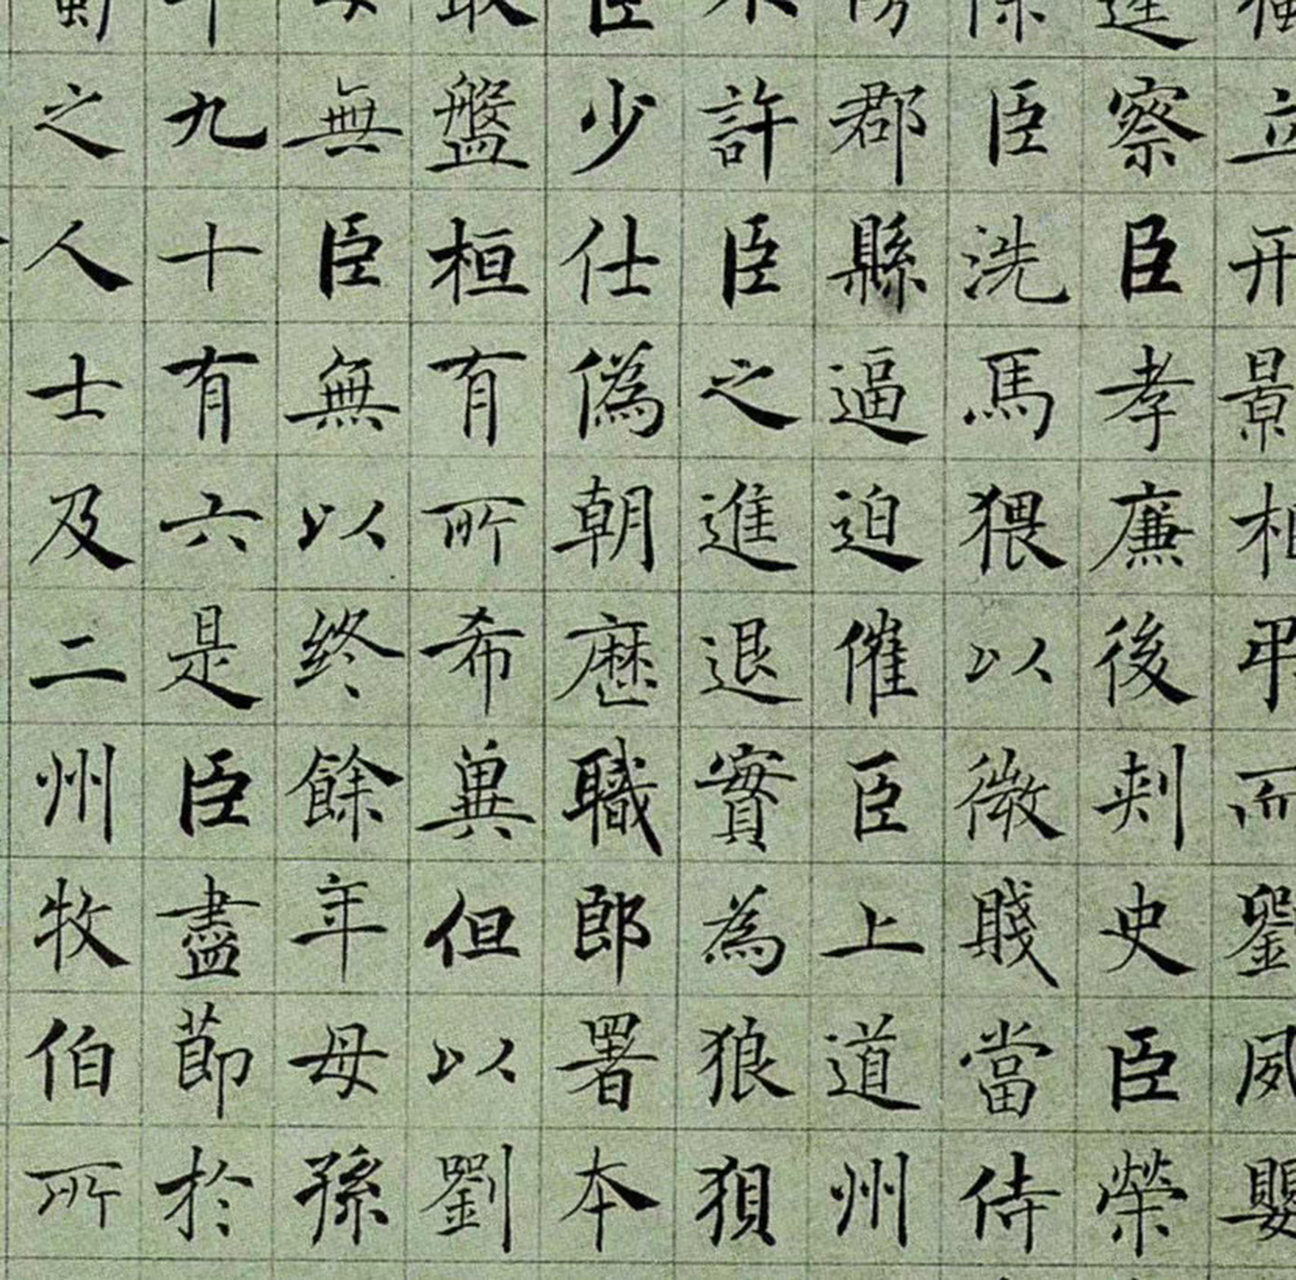 立形景相弔而劉夙嬰
逵察臣孝廉後刺史臣榮
除臣洗馬猥以微賤當侍
郡縣逼迫催臣上道州
不許臣之進退實為狼狽
臣少仕偽朝歷職郎署本
敢盤桓有所希冀但以劉
母無臣無以終餘年母孫
年九十有六是臣盡節於
蜀之人士及二州牧伯所